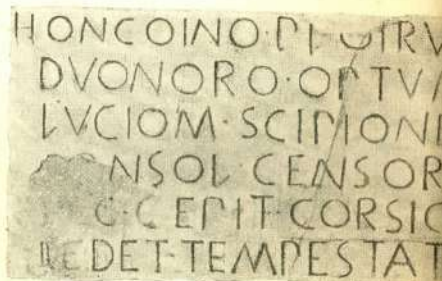 HONCOINO·PLOIRV
DVONORO·OPTV
LVCIOM·SCIPION
NSOL·CENSOR
C·CEPIT·CORSIC
DEDET·TEMPESTAT